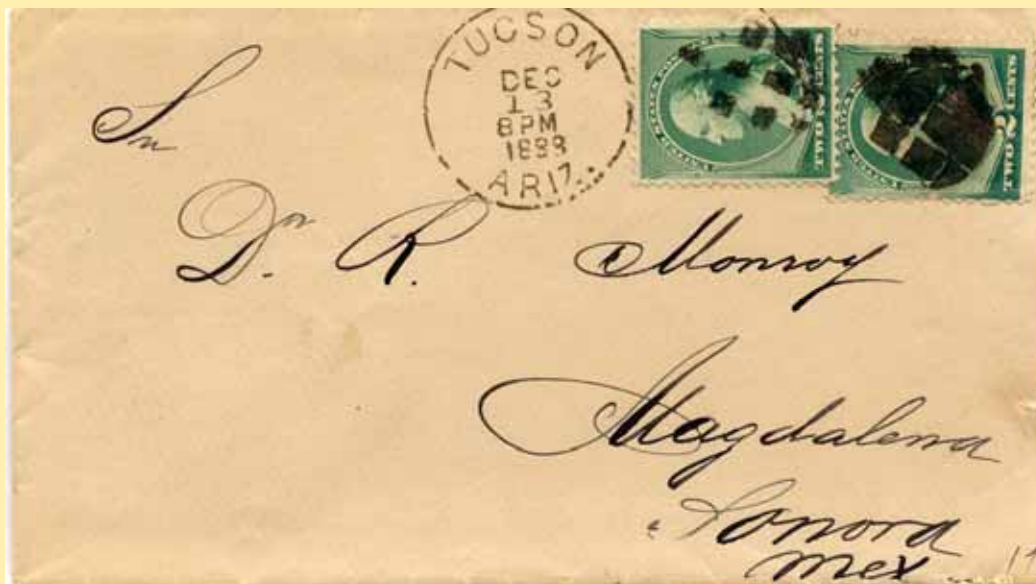 TUCSON
DEC
13
8PM
1888
ARIZ.
TWO 2 CENTS
TWO 2 CENTS
Sr
Dn R. Monroy
Magdalena
Sonora
Mex